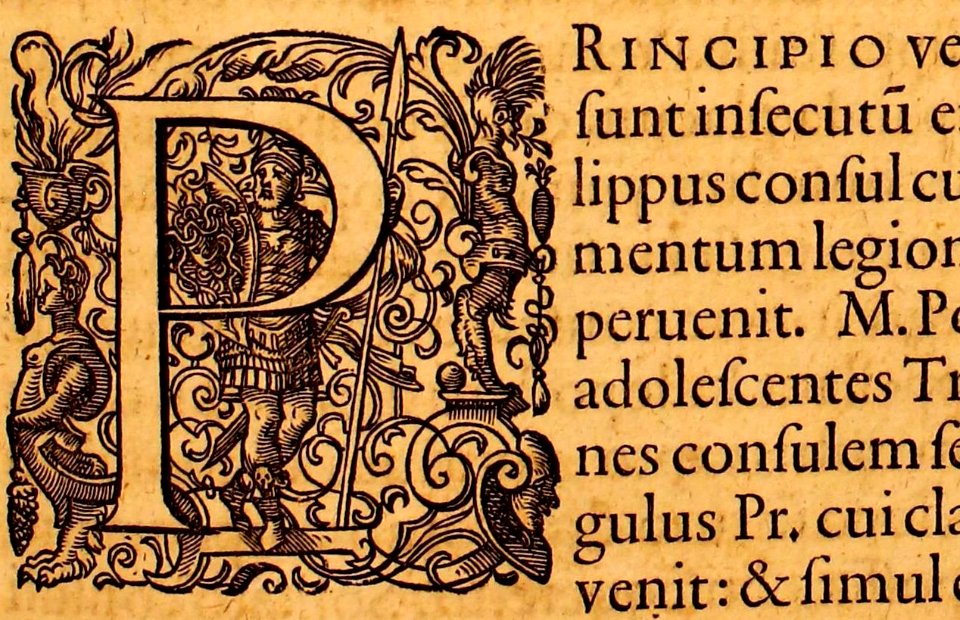 PRINCIPIO ve
ſunt inſecutū e
lippus conſul cu
mentum legion
peruenit. M. Pe
adoleſcentes Tr
nes conſulem ſe
gulus Pr. cui cla
venit: & ſimul e